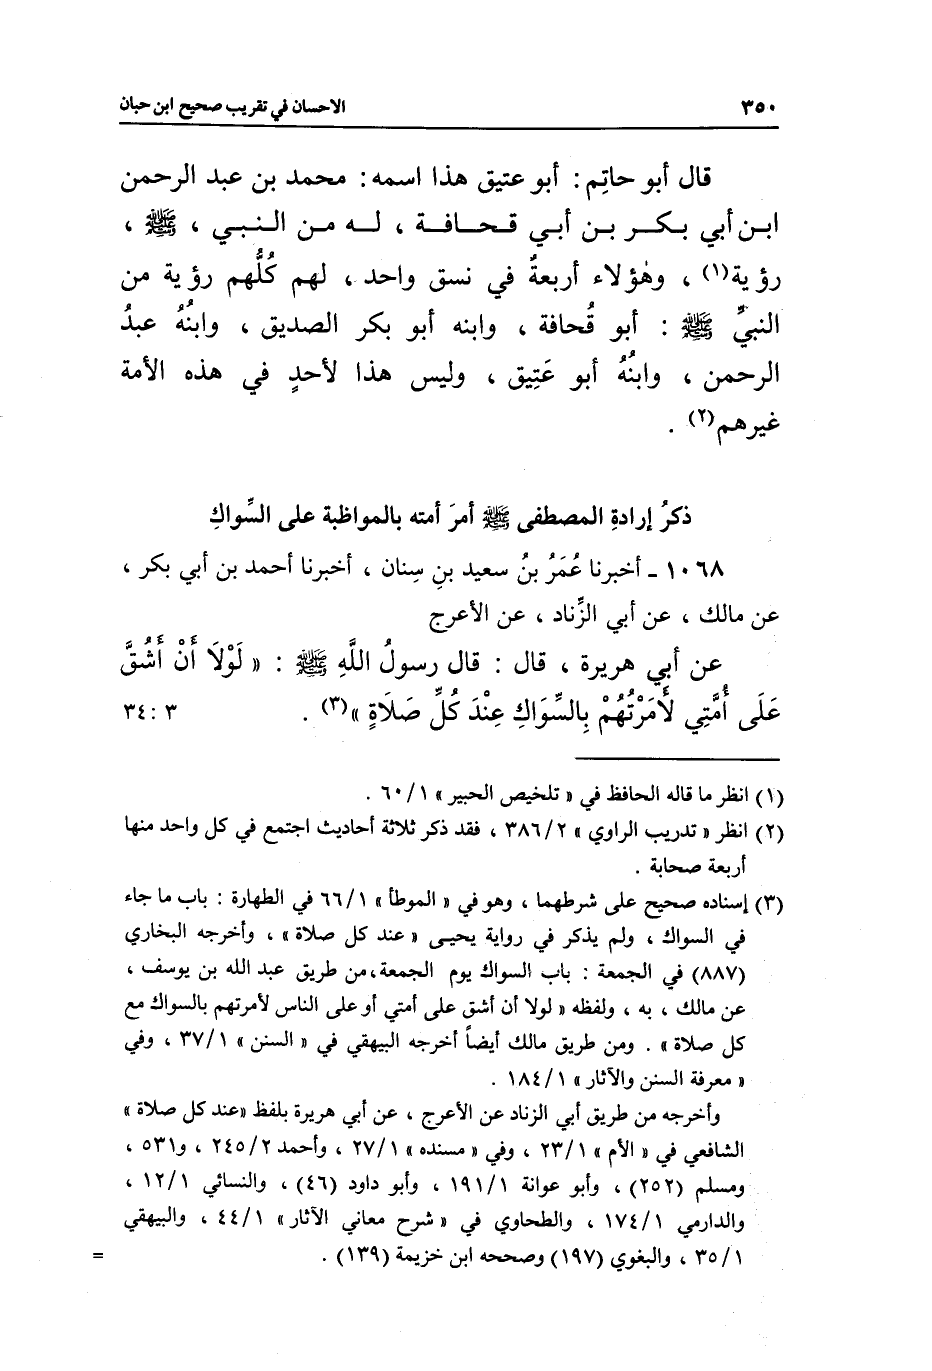 ٣٥٠ الاحسان في تقريب صحيح ابن حبان
قال أبو حاتِم : أبو عتيق هذا اسمه : محمد بن عبد الرحمن
ابن أبي بكر بن أبي قحافة ، له من النبي ، ﷺ ،
رؤية(١) ، وهٰؤلاء أربعةٌ في نسق واحد ، لهم كُلُّهم رؤية من
النبيِّ ﷺ : أبو قُحافة ، وابنه أبو بكر الصديق ، وابنُهُ عبدُ
الرحمن ، وابنُهُ أبو عَتِيق ، وليس هذا لأحدٍ في هذه الأمة
غيرهم(٢) .
ذكرُ إرادةِ المصطفى ﷺ أمرَ أمته بالمواظبة على السِّواكِ
١٠٦٨ ـ أخبرنا عُمَرُ بنُ سعيد بنِ سِنان ، أخبرنا أحمد بن أبي بكر ،
عن مالك ، عن أبي الزِّناد ، عن الأعرج
عن أبي هريرة ، قال : قال رسولُ اللَّهِ ﷺ : « لَوْلَا أَنْ أَشُقَّ
عَلَى أُمَّتِي لأَمَرْتُهُمْ بِالسِّوَاكِ عِنْدَ كُلِّ صَلَاةٍ »(٣) . ٣ : ٣٤
(١) انظر ما قاله الحافظ في « تلخيص الحبير » ٦٠/١ .
(٢) انظر « تدريب الراوي » ٣٨٦/٢ ، فقد ذكر ثلاثة أحاديث اجتمع في كل واحد منها
أربعة صحابة .
(٣) إسناده صحيح على شرطهما ، وهو في « الموطأ » ٦٦/١ في الطهارة : باب ما جاء
في السواك ، ولم يذكر في رواية يحيى « عند كل صلاة » ، وأخرجه البخاري
(٨٨٧) في الجمعة : باب السواك يوم الجمعة ، من طريق عبد الله بن يوسف ،
عن مالك ، به ، ولفظه « لولا أن أشق على أمتي أو على الناس لأمرتهم بالسواك مع
كل صلاة » . ومن طريق مالك أيضاً أخرجه البيهقي في « السنن » ٣٧/١ ، وفي
« معرفة السنن والآثار » ١٨٤/١ .
وأخرجه من طريق أبي الزناد عن الأعرج ، عن أبي هريرة بلفظ «عند كل صلاة »
الشافعي في « الأم » ٢٣/١ ، وفي « مسنده » ٢٧/١ ، وأحمد ٢٤٥/٢ ، و٥٣١ ،
ومسلم (٢٥٢) ، وأبو عوانة ١٩١/١ ، وأبو داود (٤٦) ، والنسائي ١٢/١ ،
والدارمي ١٧٤/١ ، والطحاوي في « شرح معاني الآثار » ٤٤/١ ، والبيهقي
٣٥/١ ، والبغوي (١٩٧) وصححه ابن خزيمة (١٣٩) . =